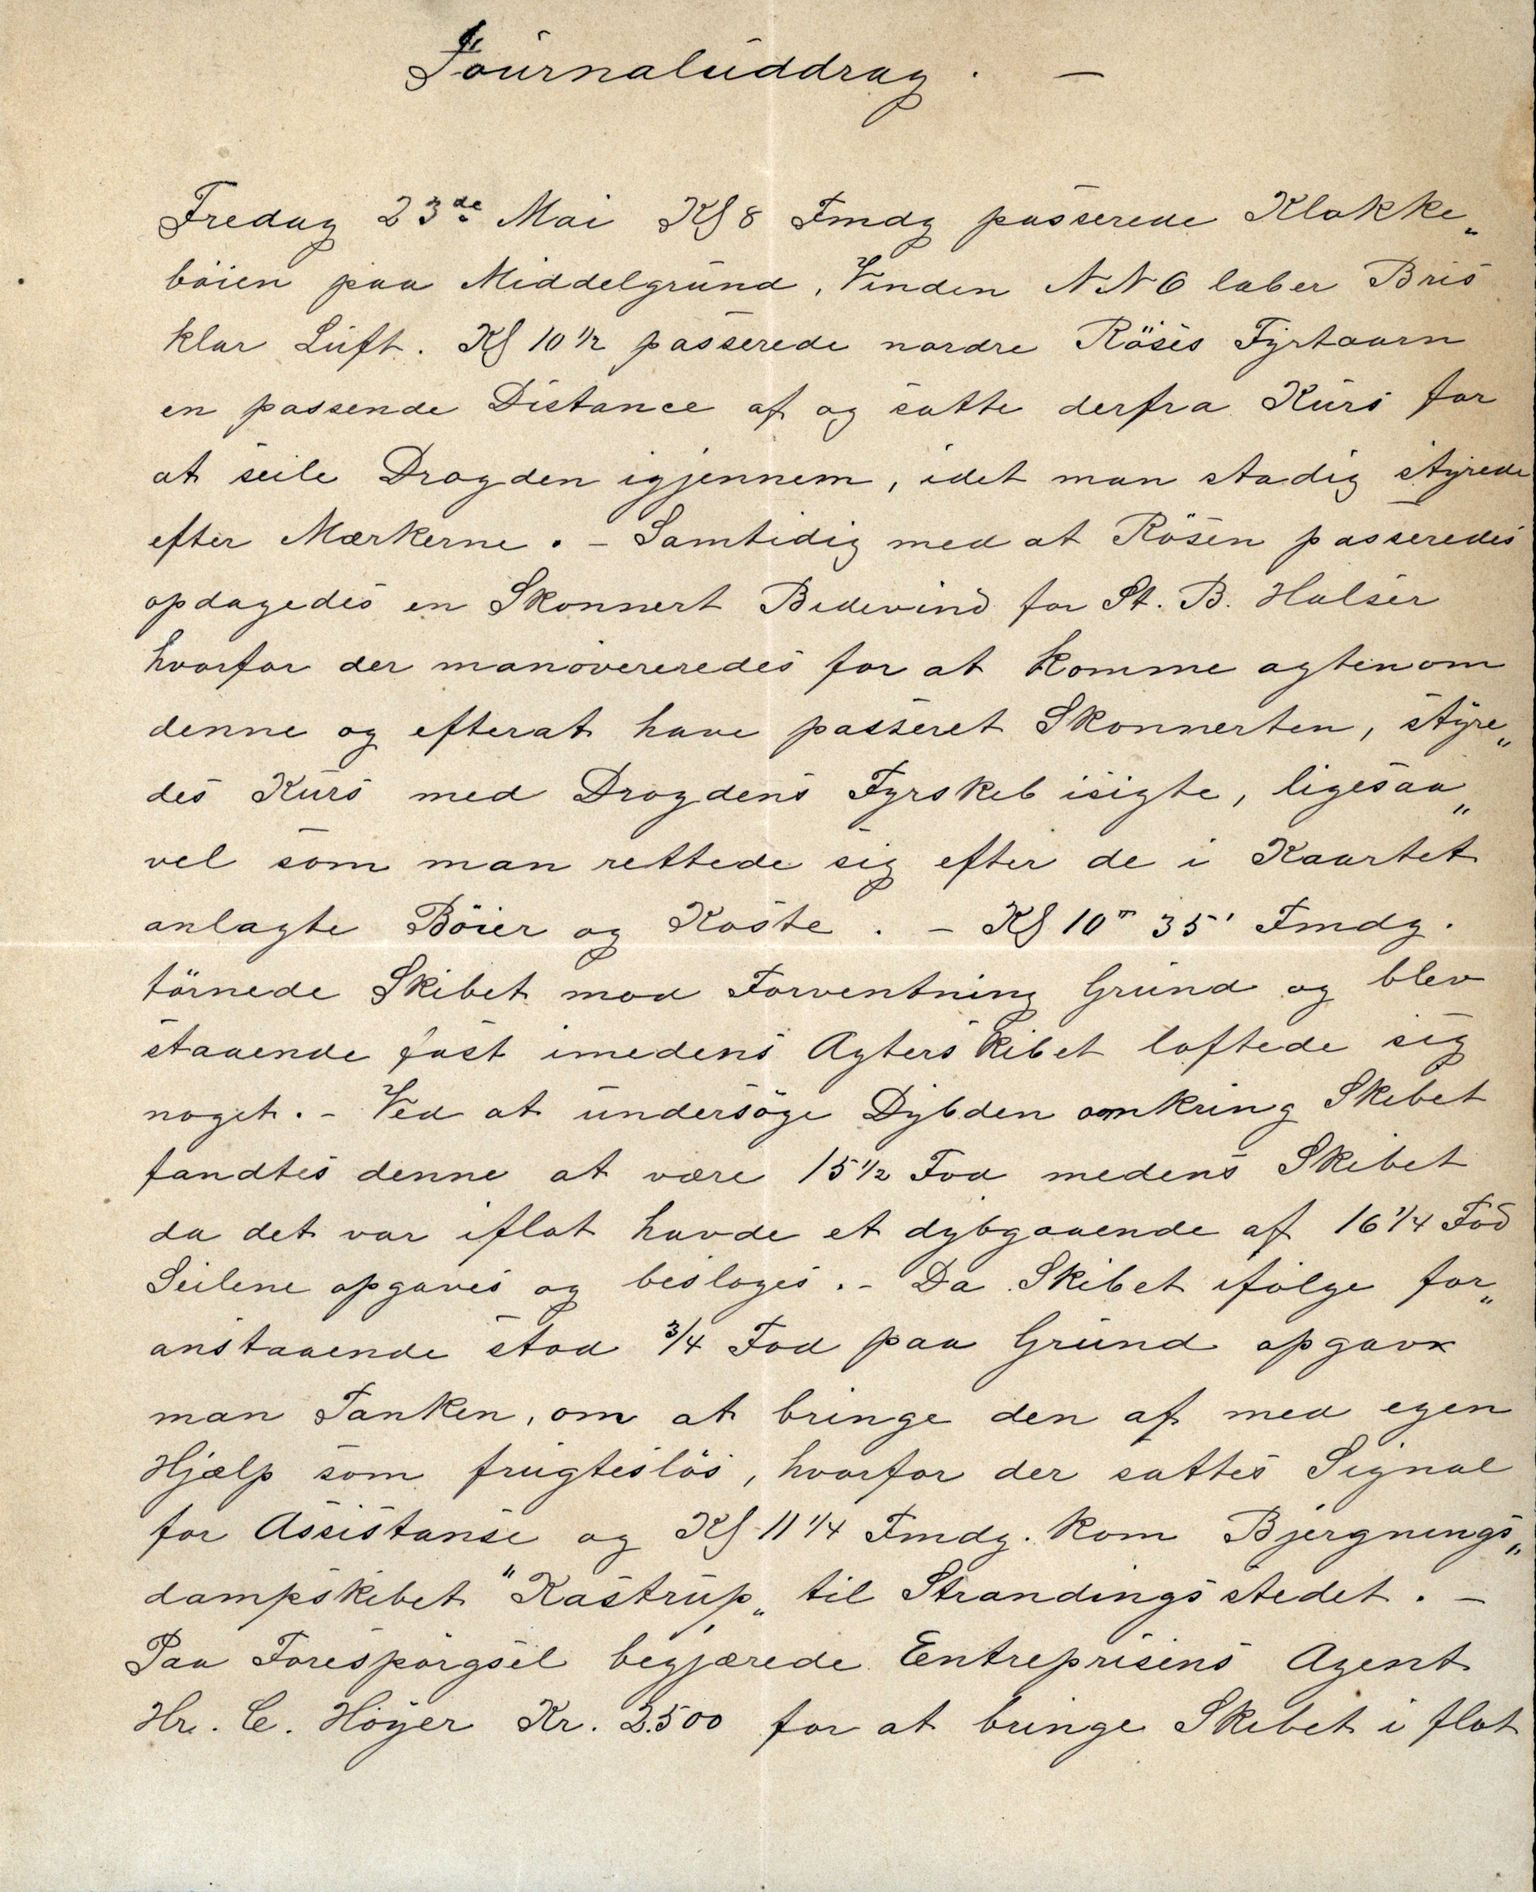 Journaluddrag. —
Fredag 23de Mai Kl 8 Fmdg passerede Klokke„
böien paa Middelgrund, Vinden N N O laber Bris
klar Luft. Kl 10 1/2 passerede nordre Röses Fyrtaarn
en passende Distance af og satte derfra Kurs for
at seile Drogden igjennem, idet man stadig styrede
efter Mærkerne. – Samtidig med at Rösen passeredes
opdagedes en Skonnert Bidevind for St. B. Halser
hvorfor der manövereredes for at komme agtenom
denne og efterat have passeret Skonnerten, styre„
des Kurs med Drogdens Fyrskib isigte, ligesaa„
vel som man rettede sig efter de i Kaartet
anlagte Böier og Koste. – Kl 10 35' Fmdg.
törnede Skibet mod Forventning Grund og blev
staaende fast imedens Agterskibet loftede sig
noget. – Ved at undersöge Dybden omkring Skibet
fandtes denne at være 15 1/2 Fod medens Skibet
da det var iflot havde et dybgaaende af 16 1/4 Fod
Seilene opgaves og besloges. – Da Skibet ifölge for„
anstaaende stod 3/4 Fod paa Grund opgav
man Tanken, om at bringe den af med egen
Hjælp som frugteslös, hvorfor der sattes Signal
for Assistanse og Kl 11 1/4 Fmdg. kom Bjergnings„
dampskibet "Kastrup„ til Strandingsstedet. –
Paa Forespörgsel begjærede Entreprisens Agent
Hr. C. Höyer Kr. 3500 for at bringe Skibet i flot